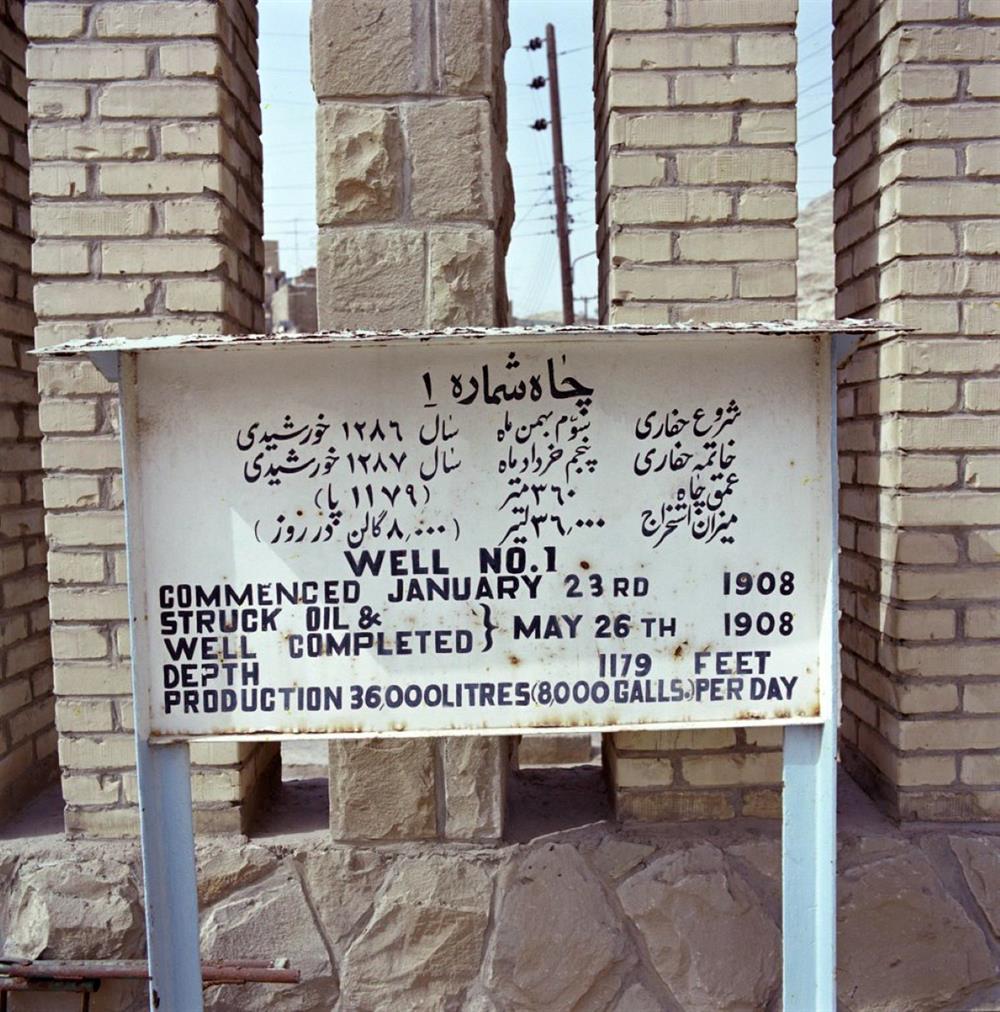 چاه شماره ۱
شروع حفاری سوّم بهمن ماه سال ۱۲۸۶ خورشیدی
خاتمه حفاری پنجم خرداد ماه سال ۱۲۸۷ خورشیدی
عمق چاه ۳۶۰ متر (۱۱۷۹ پا)
میزان استخراج ۳۶٬۰۰۰ لیتر (۸٬۰۰۰ گالن در روز)
WELL NO.1
COMMENCED JANUARY 23RD 1908
STRUCK OIL &
WELL COMPLETED } MAY 26TH 1908
DEPTH 1179 FEET
PRODUCTION 36,000 LITRES (8,000 GALLS.) PER DAY